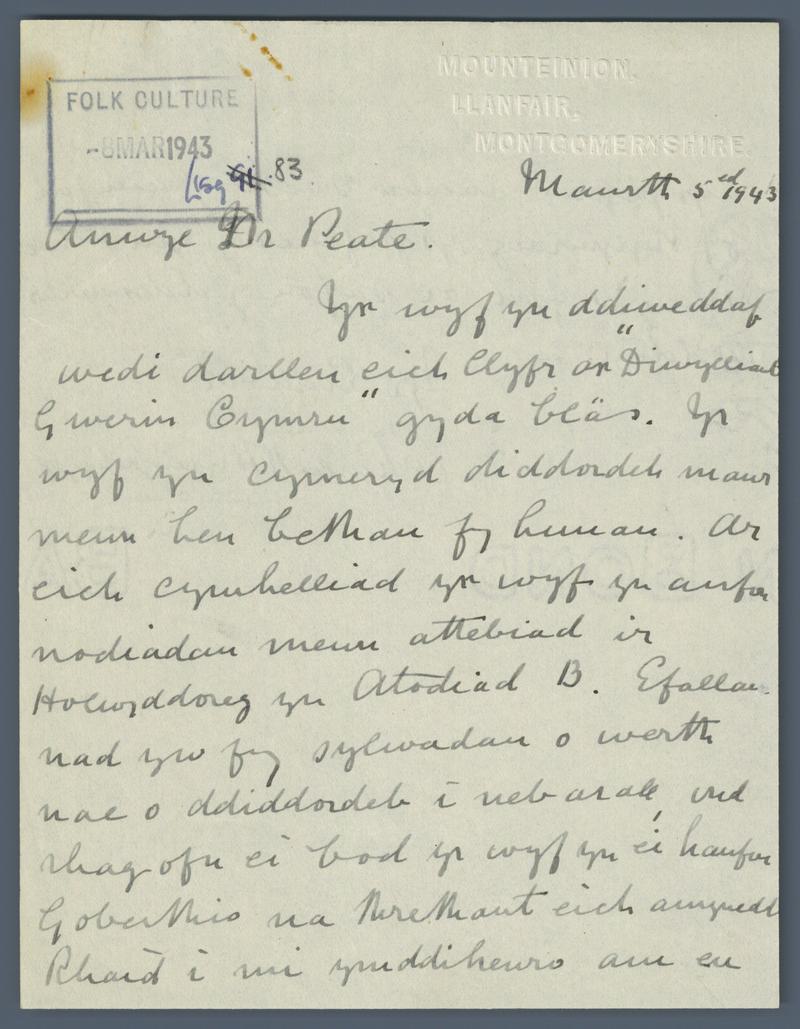 MOUNTEINION,
LLANFAIR,
MONTGOMERYSHIRE.
FOLK CULTURE
-8 MAR 1943
83
Mawrth 5ed 1943
Annwyl Dr Peate.
Yr wyf yn ddiweddaf
wedi darllen eich Llyfr ar "Diwylliant
Gwerin Cymru" gyda blâs. Yr
wyf yn cymeryd diddordeb mawr
mewn hen bethau fy hunan. Ar
eich cymhelliad yr wyf yn anfon
nodiadau mewn attebiad i'r
Holwyddoreg yn Atodiad B. Efallai
nad yw fy sylwadau o werth
nac o ddiddordeb i neb arall, ond
rhag ofn ei bod yr wyf yn ei hanfon
Gobeithio na threthant eich amynedd
Rhaid i mi ymddiheuro am eu